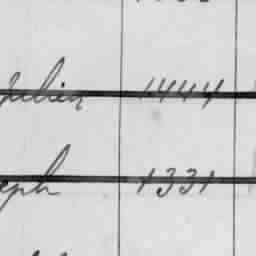 Julien 1444
eph 1331